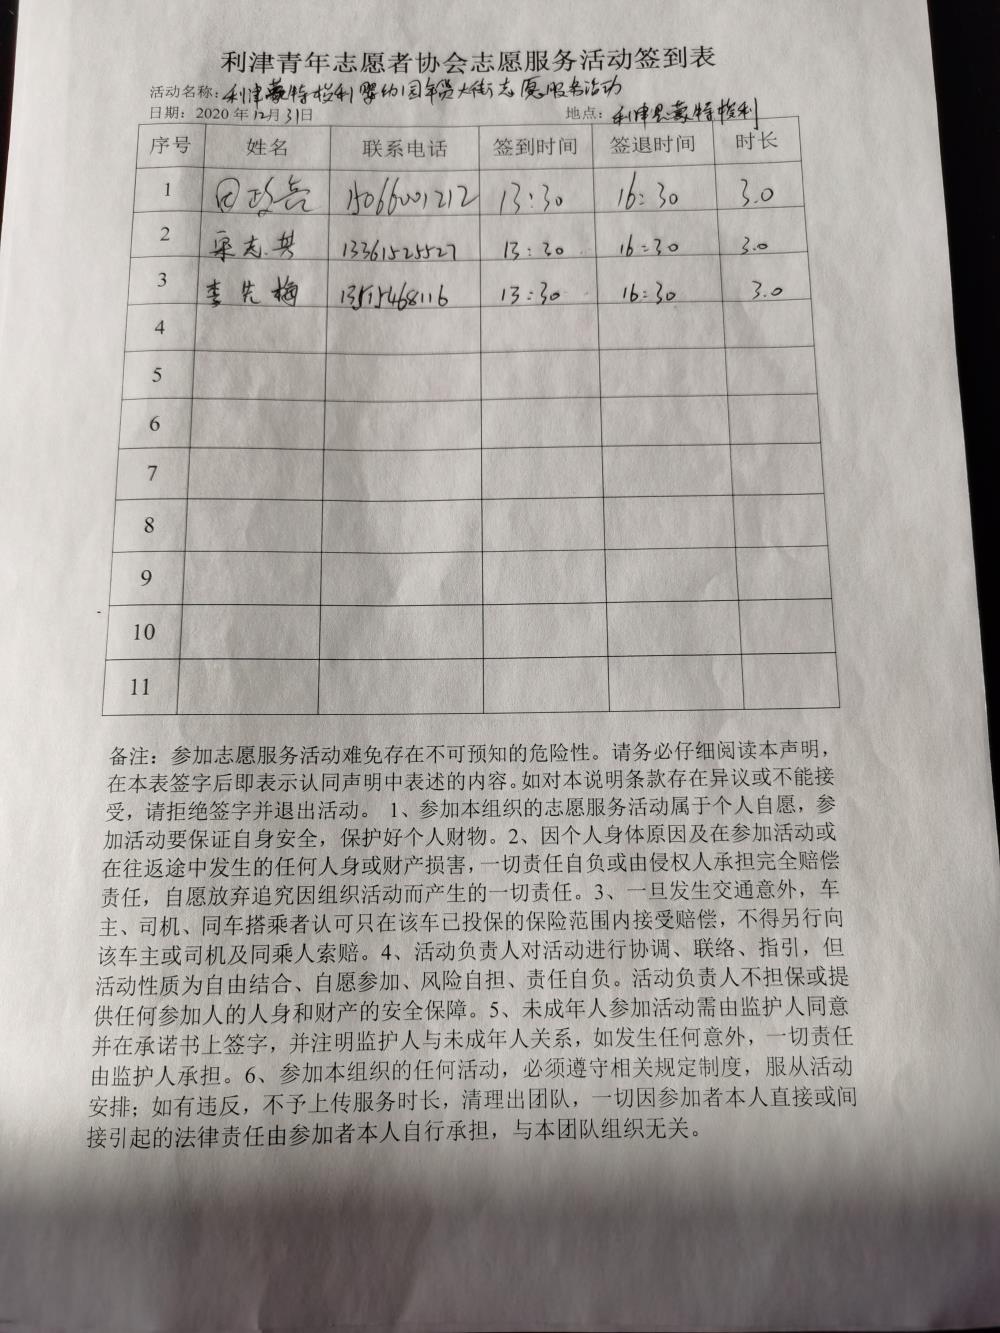 利津青年志愿者协会志愿服务活动签到表
活动名称：利津蒙特梭利婴幼园年货大街志愿服务活动
日期：2020年12月31日 地点：利津县蒙特梭利
序号 姓名 联系电话 签到时间 签退时间 时长
1 田政亮 15066001212 13:30 16:30 3.0
2 宋志其 13361525527 13:30 16:30 3.0
3 李先梅 13515468116 13:30 16:30 3.0
4
5
6
7
8
9
10
11
备注：参加志愿服务活动难免存在不可预知的危险性。请务必仔细阅读本声明，
在本表签字后即表示认同声明中表述的内容。如对本说明条款存在异议或不能接
受，请拒绝签字并退出活动。 1、参加本组织的志愿服务活动属于个人自愿，参
加活动要保证自身安全，保护好个人财物。2、因个人身体原因及在参加活动或
在往返途中发生的任何人身或财产损害，一切责任自负或由侵权人承担完全赔偿
责任，自愿放弃追究因组织活动而产生的一切责任。3、一旦发生交通意外，车
主、司机、同车搭乘者认可只在该车已投保的保险范围内接受赔偿，不得另行向
该车主或司机及同乘人索赔。4、活动负责人对活动进行协调、联络、指引，但
活动性质为自由结合、自愿参加、风险自担、责任自负。活动负责人不担保或提
供任何参加人的人身和财产的安全保障。5、未成年人参加活动需由监护人同意
并在承诺书上签字，并注明监护人与未成年人关系，如发生任何意外，一切责任
由监护人承担。6、参加本组织的任何活动，必须遵守相关规定制度，服从活动
安排；如有违反，不予上传服务时长，清理出团队，一切因参加者本人直接或间
接引起的法律责任由参加者本人自行承担，与本团队组织无关。